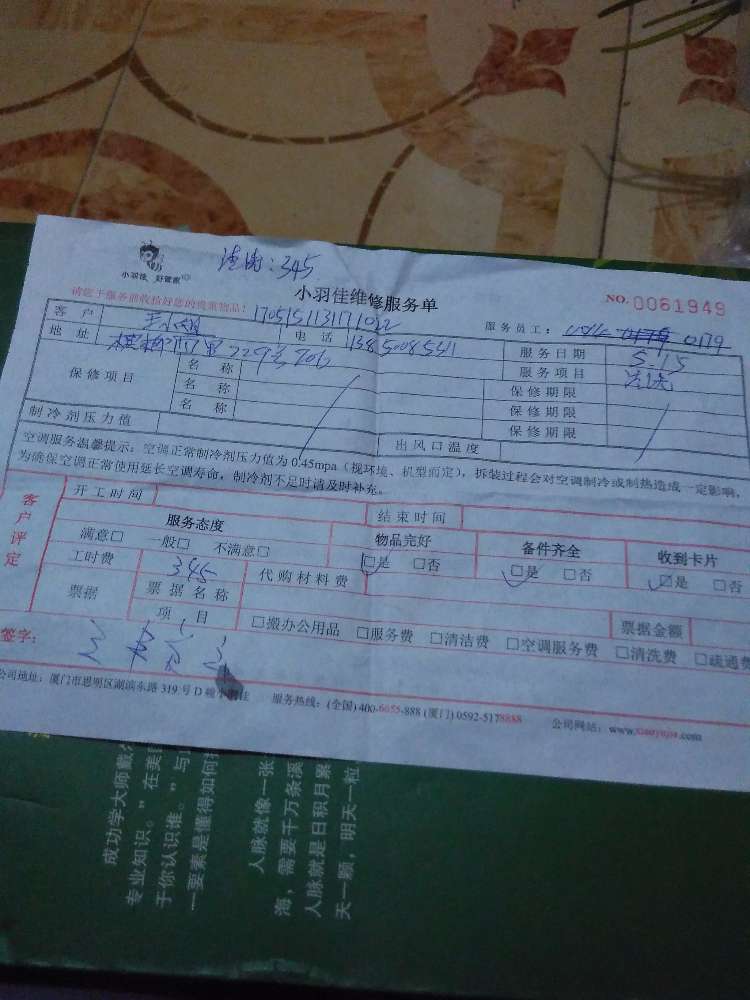 小羽佳 好管家
连内:345
小羽佳维修服务单
NO. 0061949
请您于服务前收拾好您的贵重物品!
170515113171022
服务员工: 0179
客 户
电 话
服务日期 5.15
地 址
服务项目
保修项目
名 称
保修期限
名 称
保修期限
名 称
保修期限
制冷剂压力值
出风口温度
空调服务温馨提示:空调正常制冷剂压力值为 0.45mpa(视环境、机型而定),拆装过程会对空调制冷或制热造成一定影响,
为确保空调正常使用延长空调寿命,制冷剂不足时请及时补充。
客户评定
开工时间
结束时间
服务态度
物品完好
备件齐全
收到卡片
满意□ 一般□ 不满意□
□是 □否
□是 □否
□是 □否
工时费 345
代购材料费
票据
票据名称
项 目
□搬办公用品 □服务费 □清洁费 □空调服务费 □清洗费 □疏通费
票据金额
签字:
公司地址:厦门市思明区湖滨东路 319 号 D 幢小羽佳
服务热线:(全国)400-6655-888 (厦门)0592-5178888
公司网站:www.xiaoyujia.com
成功学大师戴尔
专业知识。”在美
于你认识谁。”与
一要素是懂得如何
人脉就像一张
海,需要千万条溪
人脉就是日积月累
天一颗,明天一粒